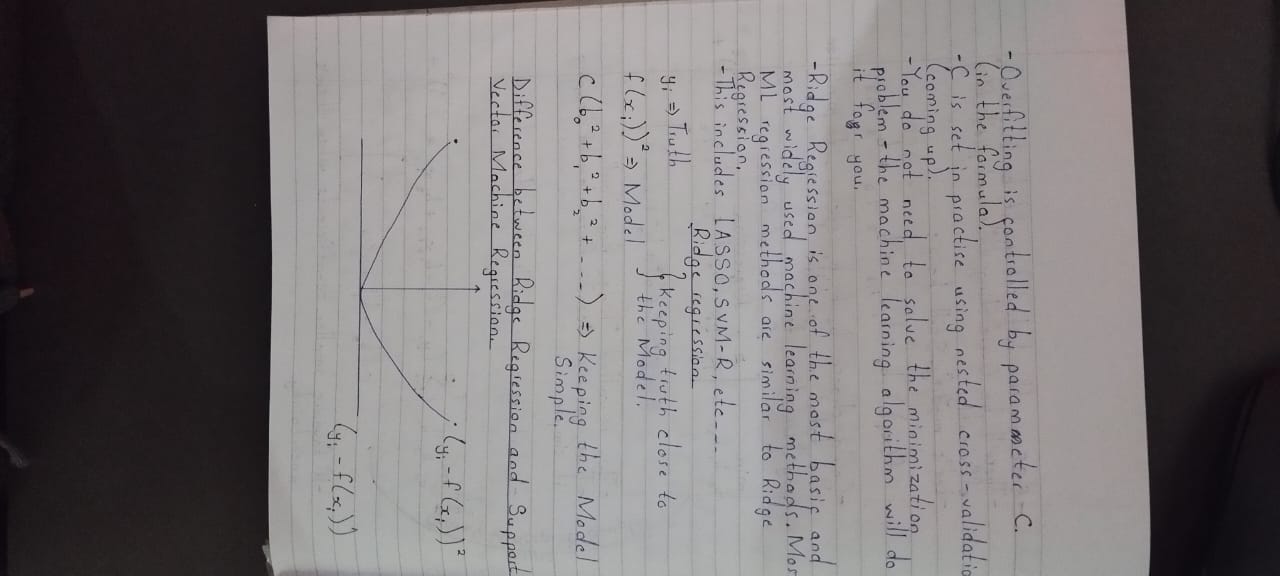 - Overfitting is controlled by parammeter C.
(in the formula).
- C is set in practise using nested cross-validatio
(coming up).
- You do not need to solve the minimization
problem - the machine learning algorithm will do
it for you.
- Ridge Regression is one of the most basic and
most widely used machine learning methods. Mos
ML regression methods are similar to Ridge
Regression.
- This includes LASSO, SVM-R, etc----
Ridge regression
yᵢ ⇒ Truth } keeping truth close to
f(xᵢ))² ⇒ Model } the Model.
C(b₀² + b₁² + b₂² + ----) ⇒ Keeping the Model
Simple.
Difference between Ridge Regression and Support
Vector Machine Regression.
(yᵢ - f(xᵢ))²
(yᵢ - f(xᵢ))